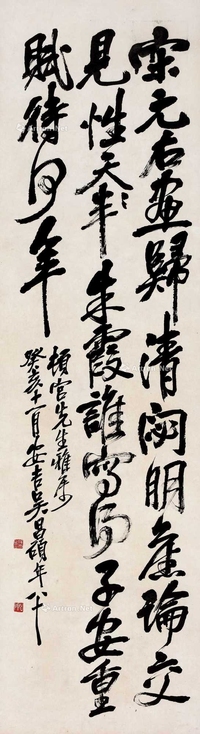 宋元石畫歸清閟明舊論交
見性天半朱霞誰寫得子安重
賦待何年
頓宮先生雅屬
癸亥十一月安吉吳昌碩年八十